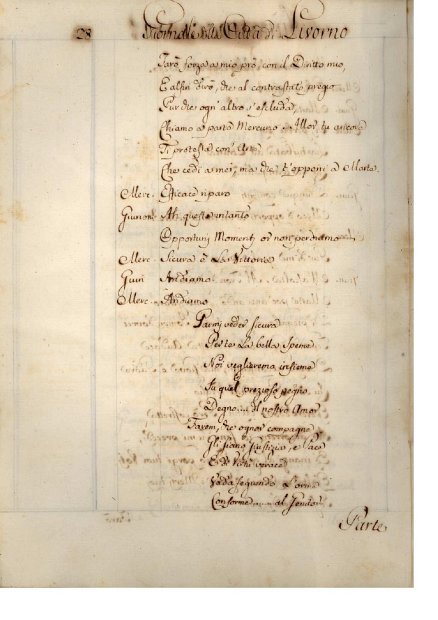 28 della Città di Livorno
Farò forza a mio prò, con il Diritto mio,
E alfin dirò, che al contrastato pregio
Pur che ogn'altro s'escluda,
Chiamo a parte Mercurio. Allor tu ancora
Ti protesta con Arte
Che cedi a me, ma che t'opponi a Marte.
Merc. Efficace riparo
Giunon. Ah, questo intanto
Opportuni Momenti or non perdiamo
Merc. Sicura è La Vittoria
Giun. Andiamo
Merc. Andiamo
Parmi veder sicura
Per te La bella Speme
Noi veglieremo insieme
Su quel prezioso pegno
Degno del nostro Amor
Farem, che ognor compagne
Gli siano Giustizia, e Pace
E di Virtù verace
Vada seguendo L'orme
Conforme al
Parte